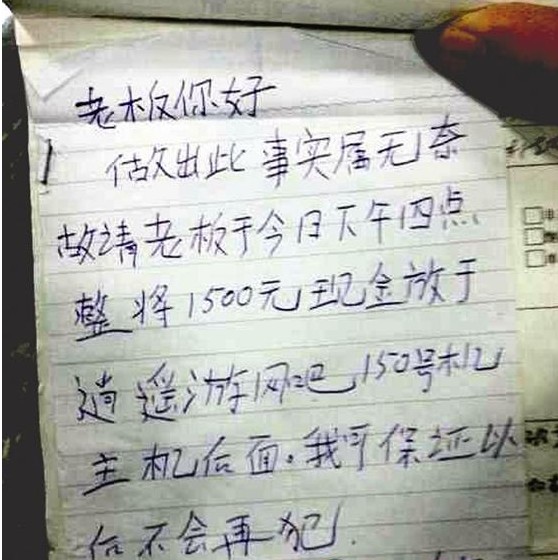 老板你好
做出此事实属无奈
故请老板于今日下午四点
整将1500元现金放于
逍遥游网吧150号机
主机后面.我可保证以
后不会再犯.